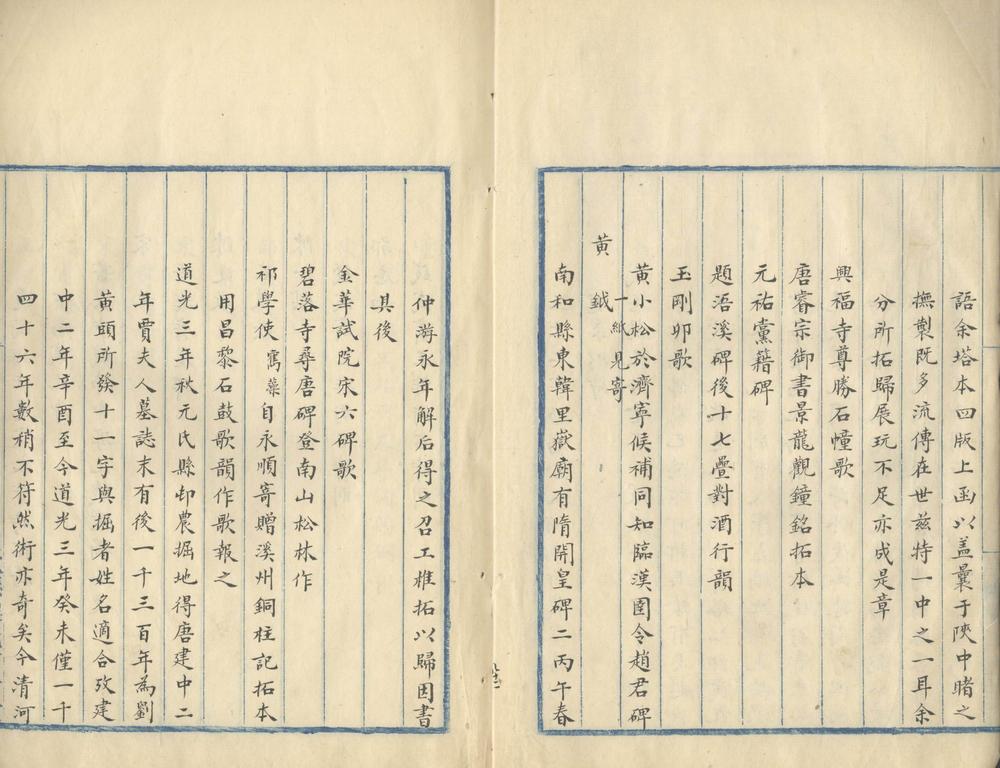 語余塔本四版上函以蓋曩于陝中睹之
撫製既多流傳在世茲特一中之一耳余
分所拓歸展玩不足亦成是章
興福寺尊勝石幢歌
唐睿宗御書景龍觀鐘銘拓本
元祐黨籍碑
題浯溪碑後十七疊對酒行韻
玉剛卯歌
黃小松於濟寧候補同知臨漢圉令趙君碑
一紙見寄
黃鉞
南和縣東韓里嶽廟有隋開皇碑二丙午春
仲游永年解后得之召工椎拓以歸因書
其後
金華試院宋六碑歌
碧落寺尋唐碑登南山松林作
祁學使寯藻自永順寄贈溪州銅柱記拓本
用昌黎石鼓歌韻作歌報之
道光三年秋元氏縣邨農掘地得唐建中二
年賈夫人墓誌末有後一千三百年為劉
黃頭所發十一字與掘者姓名適合攷建
中二年辛酉至今道光三年癸未僅一千
四十六年數稍不符然術亦奇矣今清河